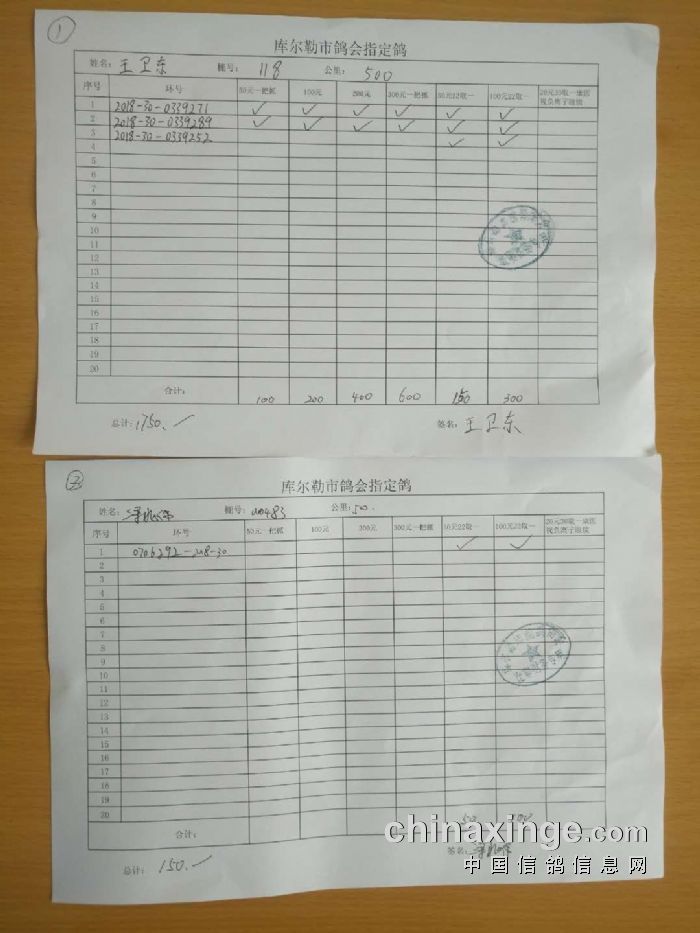 ①
库尔勒市鸽会指定鸽
姓名: 王卫东 棚号: 118 公里: 500
序号 环号 50元一把抓 100元 200元 300元一把抓 50元22取一 100元22取一 20元30取一康医视负离子眼镜
1 2018-30-0339271 ✓ ✓ ✓ ✓ ✓ ✓
2 2018-30-0339289 ✓ ✓ ✓ ✓ ✓ ✓
3 2018-30-0339252 ✓ ✓
4
5
6
7
8
9
10
11
12
13
14
15
16
17
18
19
20
合计: 100 200 400 600 150 300
总计: 1750. 签名: 王卫东
②
库尔勒市鸽会指定鸽
姓名: 棚号: 00483 公里: 500.
序号 环号 50元一把抓 100元 200元 300元一把抓 50元22取一 100元22取一 20元30取一康医视负离子眼镜
1 0706292-2018-30 ✓ ✓
2
3
4
5
6
7
8
9
10
11
12
13
14
15
16
17
18
19
20
合计: 50 100
总计: 150. 签名:
chinaxinge.com
中国信鸽信息网